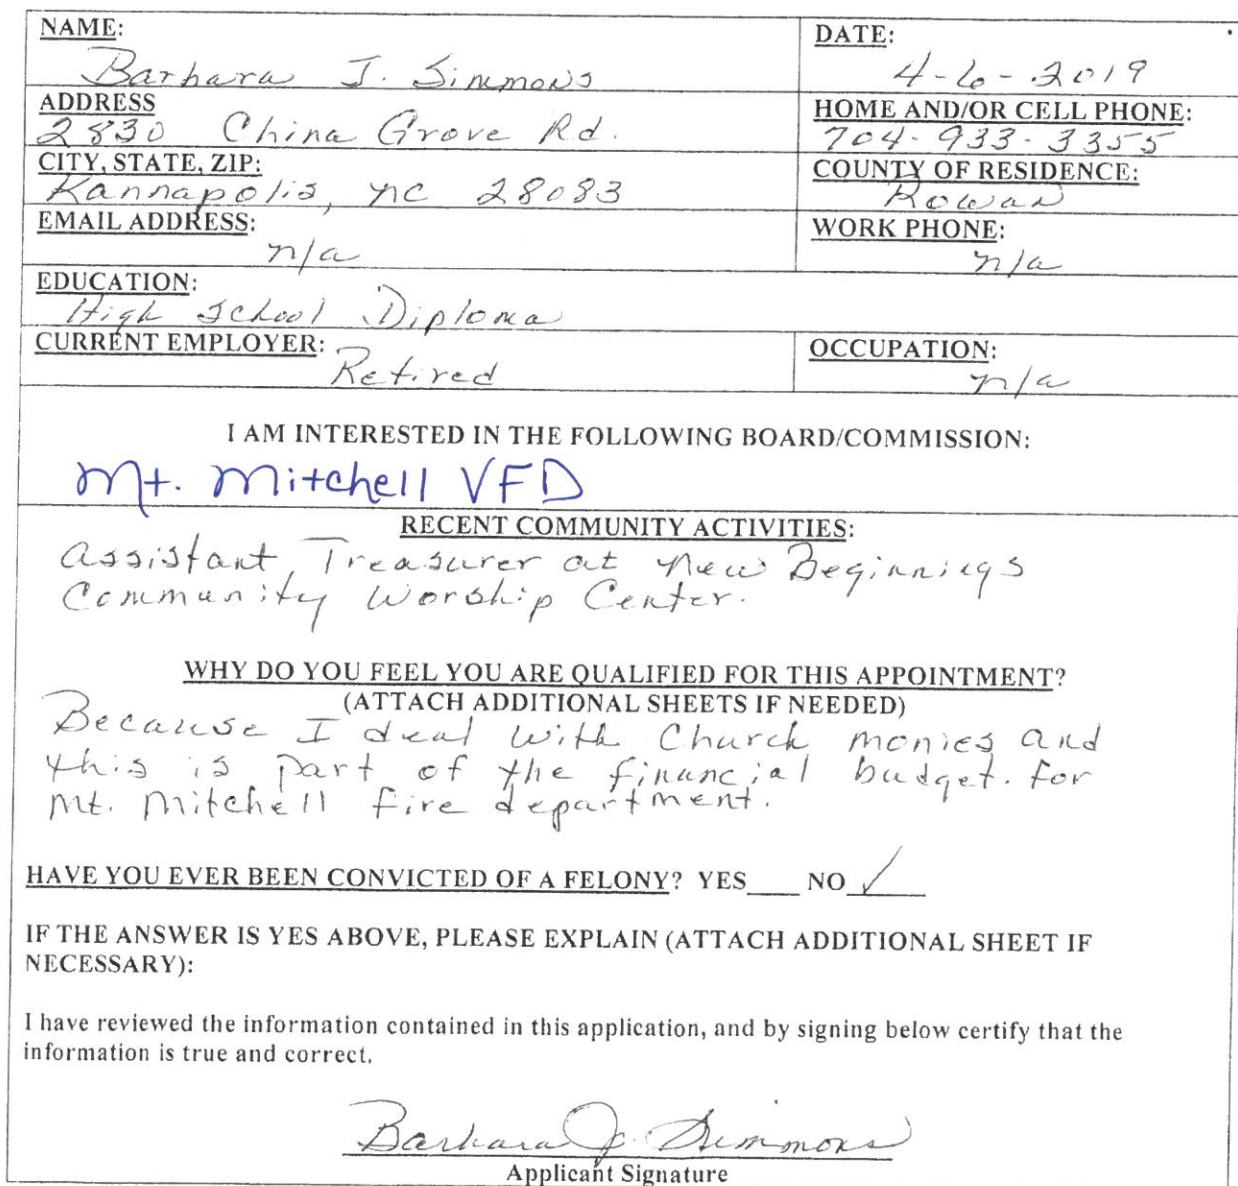 NAME:
Barbara J. Simmons
DATE:
4-6-2019
ADDRESS
2830 China Grove Rd.
HOME AND/OR CELL PHONE:
704-933-3355
CITY, STATE, ZIP:
Kannapolis, NC 28083
COUNTY OF RESIDENCE:
Rowan
EMAIL ADDRESS:
n/a
WORK PHONE:
n/a
EDUCATION:
High School Diploma
CURRENT EMPLOYER:
Retired
OCCUPATION:
n/a
I AM INTERESTED IN THE FOLLOWING BOARD/COMMISSION:
Mt. Mitchell VFD
RECENT COMMUNITY ACTIVITIES:
Assistant Treasurer at New Beginnings
Community Worship Center.
WHY DO YOU FEEL YOU ARE QUALIFIED FOR THIS APPOINTMENT?
(ATTACH ADDITIONAL SHEETS IF NEEDED)
Because I deal with Church monies and
this is part of the financial budget. for
Mt. Mitchell fire department.
HAVE YOU EVER BEEN CONVICTED OF A FELONY? YES___ NO ✓
IF THE ANSWER IS YES ABOVE, PLEASE EXPLAIN (ATTACH ADDITIONAL SHEET IF
NECESSARY):
I have reviewed the information contained in this application, and by signing below certify that the
information is true and correct.
Barbara J. Simmons
Applicant Signature